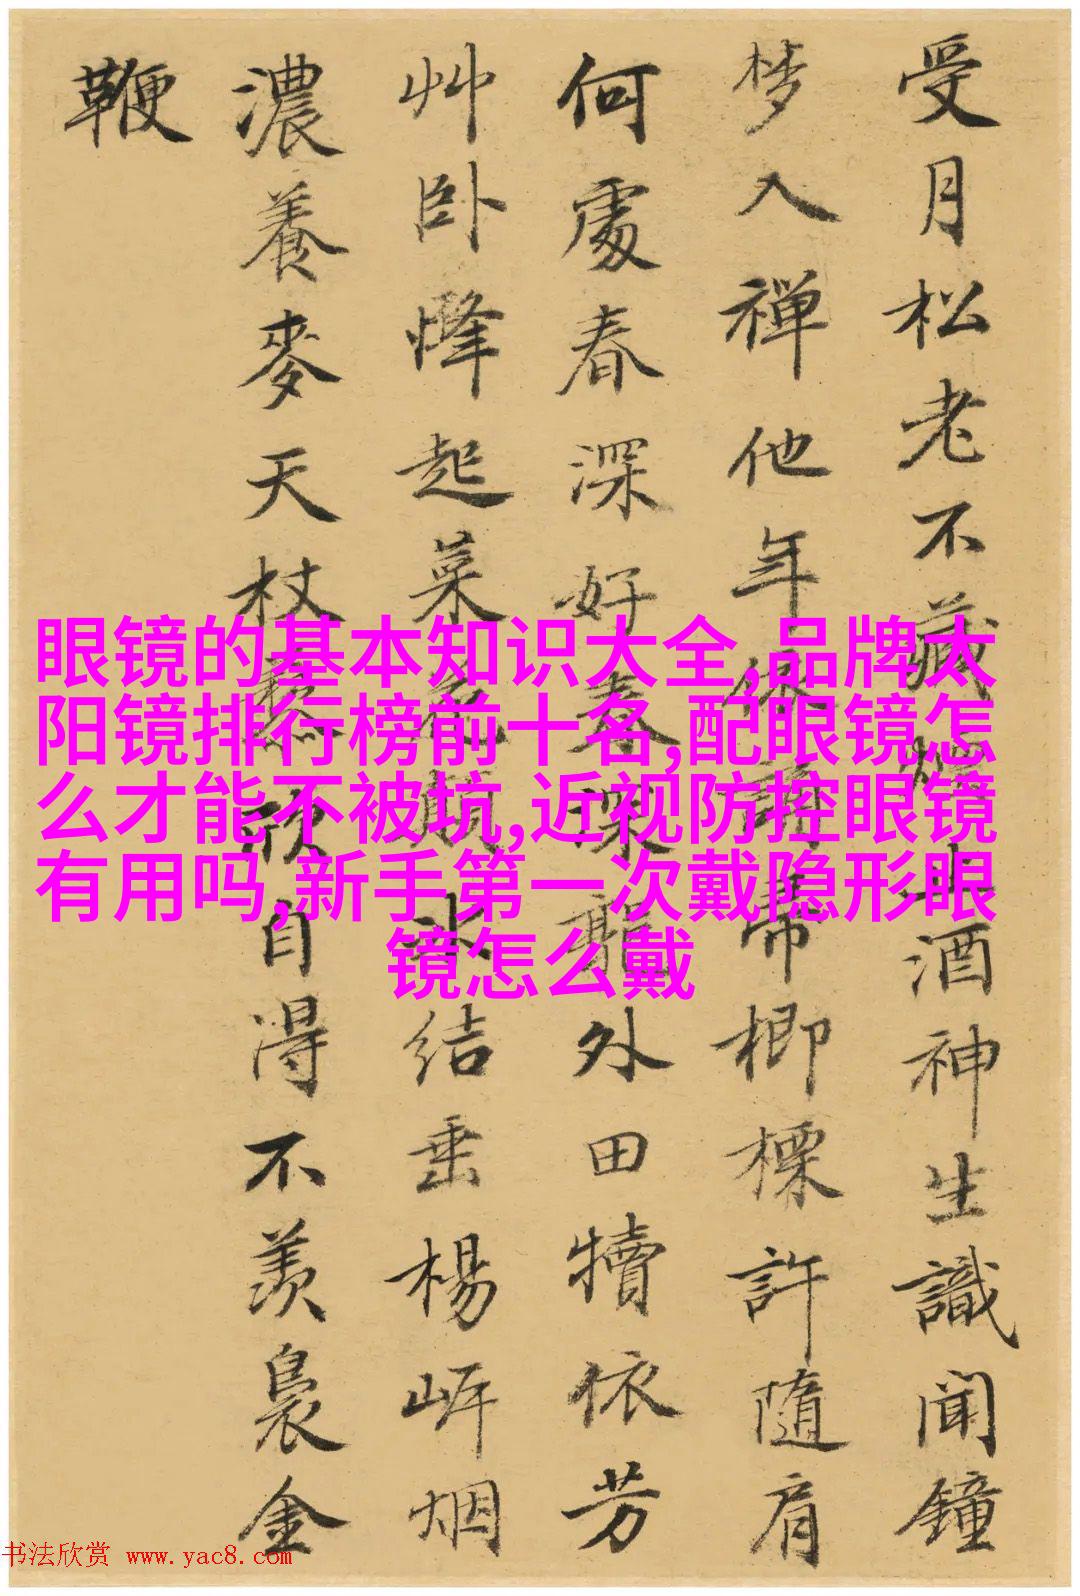 受月松老不藏煙上酒神生識聞鐘
梦入禅他年休請帚楖標許隨肩
何處春深好春深犁外田犢依芳
艸卧烽起菜花風水結垂楊岸烟
濃養麥天杖藜頗自得不羡裊金
鞭
眼镜的基本知识大全,品牌太
阳镜排行榜前十名,配眼镜怎
么才能不被坑,近视防控眼镜
有用吗,新手第一次戴隐形眼
镜怎么戴
书法欣赏 www.yac8.com